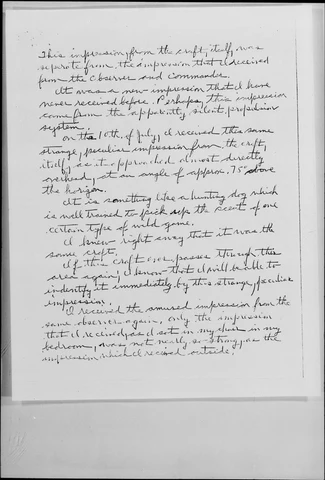 This impression, from the craft, itself, was
separate from the impression that I received
from the observer and commander.
It was a new impression that I have
never received before. Perhaps, this impression
came from the apparently silent, propulsion
system.
On the 10th, of July, I received this same
strange, peculiar impression from the craft,
itself, as it approached almost directly
overhead, at an angle of approx. 75° above
the horizon.
It is something like a hunting dog which
is well trained to pick up the scent of one
certain type of wild game.
I knew right away that it was the
same craft.
If this craft ever passes through this
area again, I know that I will be able to
indentify it immediately by this strange, peculiar
impression.
I received the amused impression from the
same observer again, only the impression
that I received, as I sat in my chair in my
bedroom, was not nearly so strong, as the
impression which I received outside.